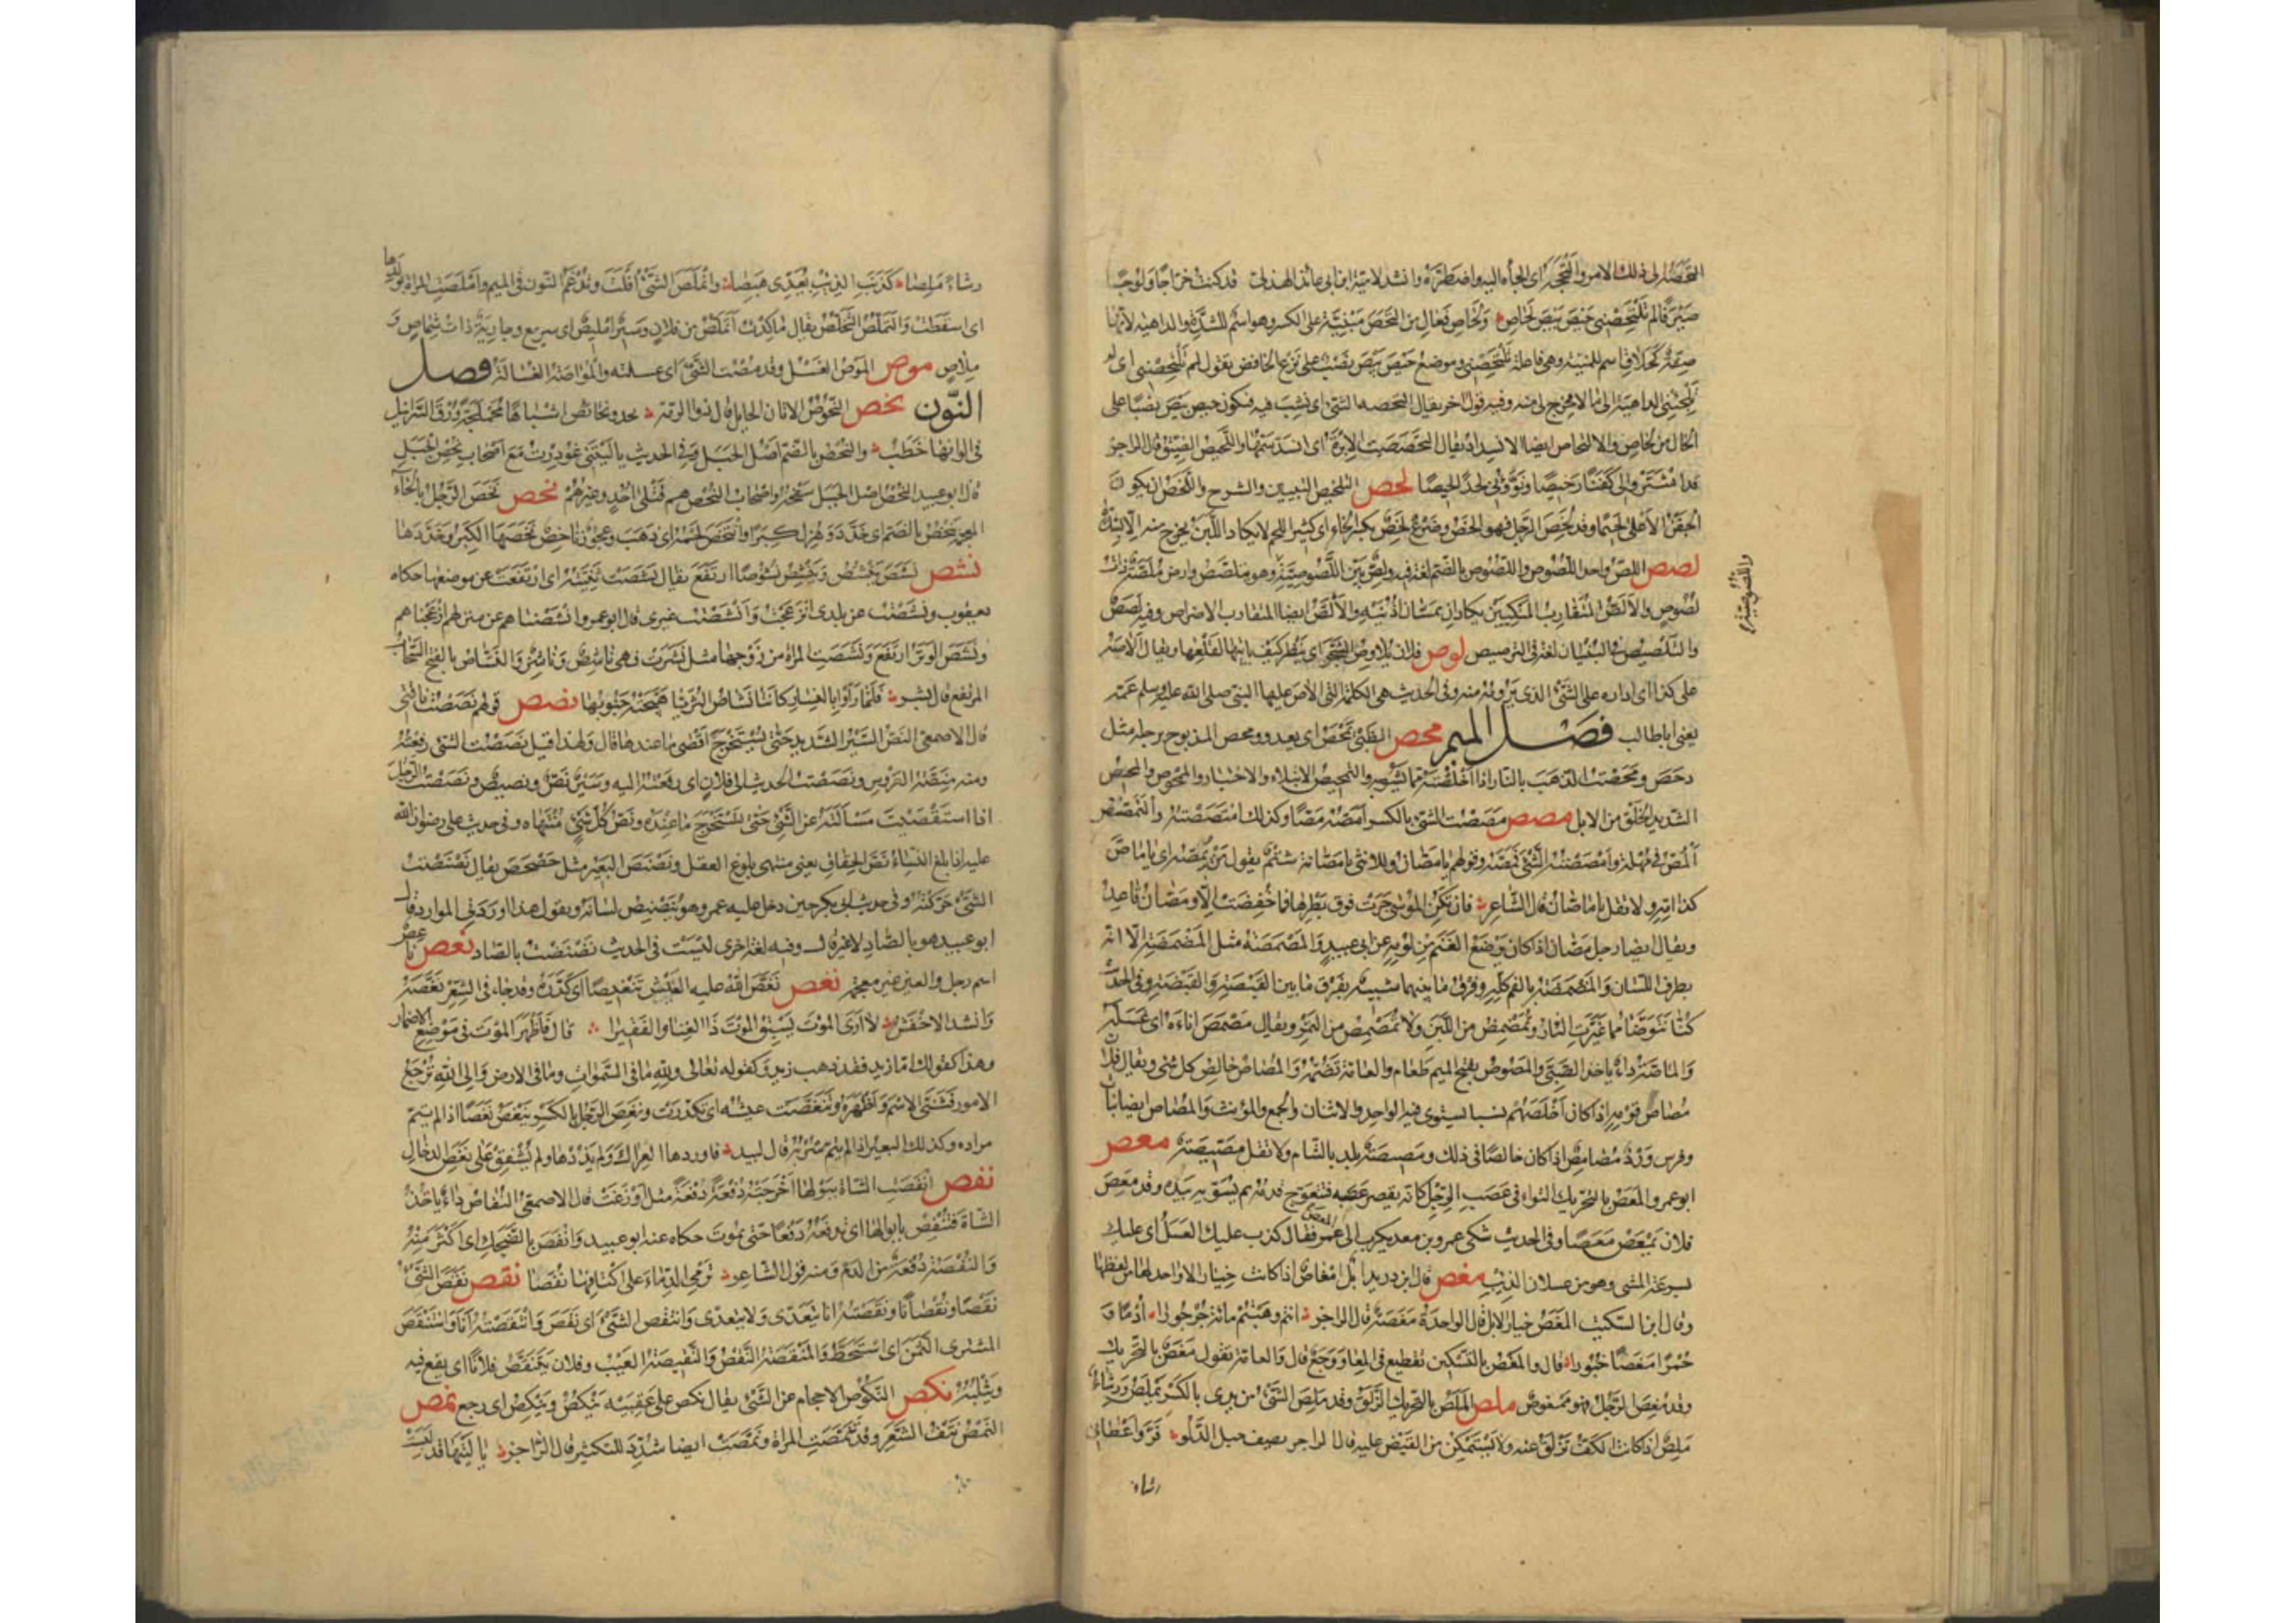 التحصه الى ذلك الامر والتحجه اى الجأه اليه واضطره وانشد لامية ابن ابى عائذ الهذلى قد كنت خرّاجا ولوجا
صيرفا لم تلتحصنى حيص بيص لحاص ولحاص فعال من التحص مبنية على الكسر وهو اسم للشدة والداهية لانها
صفة كحلاق اسم للمنية وهى فاعلة تلتحصنى وموضع حيص بيص نصب على نزع الخافض يقول لم تلتحصنى اى لم
تلجئنى الداهية الى ما لا مخرج لى منه وفيه قول اخر يقال التحصه الشئ اى نشب فيه فيكون حيص بيص نصبا على
الحال من لحاص والالتحاص ايضا الانسداد يقال التحصت الابرة اى انسد سمها واللحيص الضيق قال الراجز
قد اشتروا لى كفنا رخيصا وبوؤنى لحدا لحيصا لخص التلخيص التبيين والشرح واللخص ان يكون
الجفن الاعلى لحيما وقد لخص الرجل فهو الخص وضرع لخص بكسر الخاء اى كثير اللحم لا يكاد اللبن يخرج منه الا بشدة
لصص اللص واحد اللصوص واللصوص بالضم لغة فيه ولص بين اللصوصية وهو يتلصص وارض ملصة ذات
لصوص والالص المتقارب المنكبين يكادان يمسان اذنيه والالص ايضا المتقارب الاضراس وفيه لصص
والتلصيص فى البنيان لغة فى الترصيص لوص فلان يلاوص الشجر اى ينظر كيف ياتيها لقلعها ويقال الاصه
على كذا اى اداره على الشئ الذى يرومه منه وفى الحديث هى الكلمة التى الاص عليها النبى صلى الله عليه وسلم عمه
يعنى ابا طالب فصل الميم محص الظبى يمحص اى يعدو ومحص المذبوح برجله مثل
دحص ومحصت الذهب بالنار اذا اخلصته مما يشوبه والتمحيص الابتلاء والاختبار والممحوص والمحيص
الشديد الخلق من الابل مصص مصصت الشئ بالكسر امصه مصا وكذلك امتصصته والتمصص
المص فى مهلة وامصصته الشئ فمصه وقولهم يا مصان وللانثى يا مصانة شتم يقول من يمصه اى يا ماص
كذا امه ولا تقل يا ماصان قال الشاعر فان تكن الموسى جرت فوق بظرها فما خفضت الا ومصان قاعد
ويقال ايضا رجل مصان اذا كان يرضع الغنم من لؤمه عن ابى عبيد والمصمصة مثل المضمضة الا انه
بطرف اللسان والمضمضة بالفم كله وفرق ما بينهما شبيه بفرق ما بين القبصة والقبضة وفى الحديث
كنا نتوضأ مما غيرت النار ونمصمص من اللبن ولا نمصمص من التمر ويقال مصمص اناءه اى غسله
والماصة داء ياخذ الصبى والمصوص بفتح الميم طعام والعامة تضمه والمصاص خالص كل شئ ويقال فلان
مصاص قومه اذا كان اخلصهم نسبا يستوى فيه الواحد والاثنان والجمع والمؤنث والمصاص ايضا نبات
وفرس ورد مصامص اذا كان خالصا فى ذلك ومصيصة بلد بالشام ولا تقل مصيصة معص
ابو عمرو المعص بالتحريك التواء فى عصب الرجل كانه يقصر عصبه فتتعوج قدمه ثم يسويه بيده وقد معص
فلان يمعص معصا وفى الحديث شكى عمرو بن معديكرب الى عمر المعص فقال كذب عليك العسل اى عليك
بسرعة المشى وهو من عسلان الذئب مغص قال ابن دريد ابل امغاص اذا كانت خيارا لا واحد لها من لفظها
وقال ابن السكيت المغص خيار الابل قال الواحدة مغصة قال الراجز انتم وهبتم مائة جرجورا ادما و
حمرا مغصا خبورا قال والمغص بالتسكين تقطيع فى المعا ووجع قال والعامة تقول مغص بالتحريك
وقد مغص الرجل فهو ممغوص ملص الملص بالتحريك الزلق وقد ملص الشئ من يدى بالكسر يملص ورشاء
ملص اذا كانت الكف تزلق عنه ولا تستمكن من القبض عليه قال الراجز يصف حبل الدلو فر واعطانى
رشاء
واللصوصية
رشاء ملصا كذنب الذئب يعدى هبصا وانملص الشئ افلت وتدغم النون فى الميم واملصت المراة بولدها
اى اسقطت والتملص التخلص يقال ما كدت اتملص من فلان وسير امليص اى سريع وجارية ذات شماص و
ملاص موص الموص الغسل وقد مصت الشئ اى غسلته والمواصة الغسالة فصل
النون نحص النحوص الاتان الحايل قال ذو الرمة يحدو نحائص اشباها محملجة ورق السرابيل
فى الوانها خطب والنحص بالضم اصل الجبل وفى الحديث يا ليتنى غودرت مع اصحاب نحص الجبل
قال ابو عبيد النحص اصل الجبل وسفحه واصحاب النحص هم قتلى احد وغيرهم نخص نخص الرجل بالخاء
المعجمة ينخص بالضم اى خدد وهزل كبرا وانتخص لحمه اى ذهب وعجوز ناخص نخصها الكبر وخددها
نشص نشص ينشص وينشص نشوصا ارتفع يقال نشصت ثنيته اى ارتفعت عن موضعها حكاه
يعقوب ونشصت عن بلدى انزعجت وانشصت غيرى قال ابو عمرو انشصناهم عن منزلهم ازعجناهم
ونشص الوبر ارتفع ونشصت المراة من زوجها مثل نشزت فهى ناشص وناشز والنشاص بالفتح السحاب
المرتفع قال بشر فلما راونا بالنسار كاننا نشاص الثريا هيجته جنوبها نصص قولهم نصصت ناقتى
قال الاصمعى النص السير الشديد حتى يستخرج اقصى ما عندها قال ولهذا قيل نصصت الشئ رفعته
ومنه منصة العروس ونصصت الحديث الى فلان اى رفعته اليه وسير نص ونصيص ونصصت الرجل
اذا استقصيت مسالته عن الشئ حتى تستخرج ما عنده ونص كل شئ منتهاه وفى حديث على رضوان الله
عليه اذا بلغ النساء نص الحقاق يعنى منتهى بلوغ العقل ونصنص البعير مثل حصحص يقال نصنصت
الشئ حركته وفى حديث ابى بكر حين دخل عليه عمر وهو ينصنص لسانه ويقول هذا اوردنى الموارد قال
ابو عبيد هو بالصاد لا غير قال وفيه لغة اخرى ليست فى الحديث نضنضت بالضاد نعص ناعص
اسم رجل والعين غير معجمة نغص نغص الله عليه العيش تنغيصا اى كدره وقد جاء فى الشعر نغصه
وانشد الاخفش لا ارى الموت يسبق الموت شئ نغص الموت ذا الغنا والفقيرا قال فاظهر الموت فى موضع الاضمار
وهذا كقولك اما زيد فقد ذهب زيد وكقوله تعالى ولله ما فى السموات وما فى الارض والى الله ترجع
الامور فثنى الاسم واظهره وتنغصت عيشته اى تكدرت ونغص الرجل بالكسر ينغص نغصا اذا لم يتم
مراده وكذلك البعير اذا لم يتم شربه قال لبيد فاوردها العراك ولم يذدها ولم يشفق على نغص الدخال
نفص انفصت الشاة ببولها اخرجته دفعة دفعة مثل اوزعت قال الاصمعى النفاص داء ياخذ
الشاة فتنفص بابوالها اى تدفعه دفعا حتى تموت حكاه عنه ابو عبيد وانفص بالضحك اى اكثر منه
والنفصة دفعة من الدم ومنه قول الشاعر ترمى الدماء على اكتافها نفصا نقص نقص الشئ
نقصا ونقصانا ونقصته انا يتعدى ولا يتعدى وانتقص الشئ اى نقص وانتقصته انا واستنقص
المشترى الثمن اى استحط والمنقصة النقص والنقيصة العيب وفلان ينتقص فلانا اى يقع فيه
ويثلبه نكص النكوص الاحجام عن الشئ يقال نكص على عقبيه ينكص وينكص اى رجع نمص
النمص نتف الشعر وقد تنمصت المراة ونمصت ايضا شدد للتكثير قال الراجز يا ليتها قد لبست